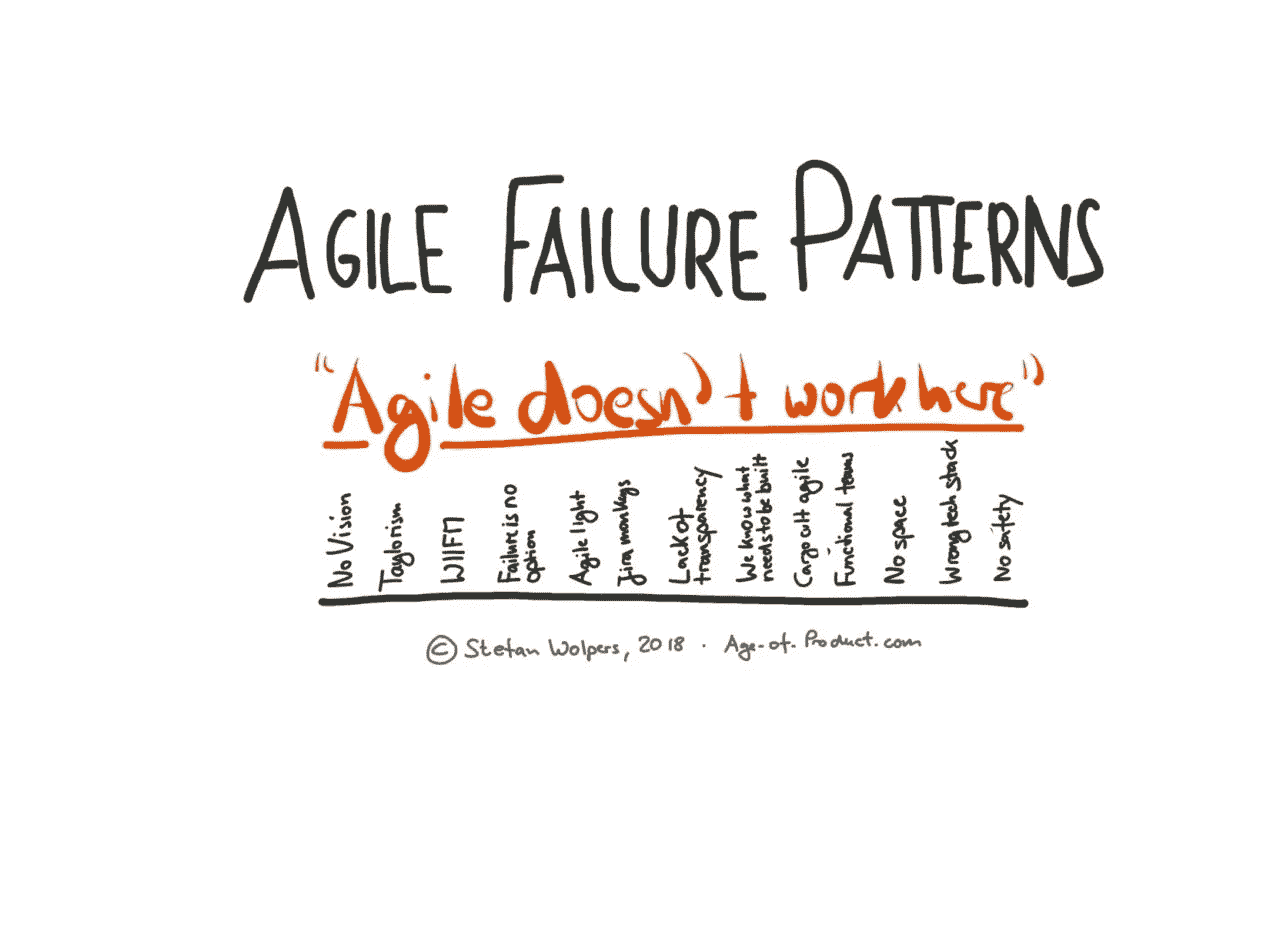 AGILE FAILURE PATTERNS
"Agile doesn't work here"
No Vision
Taylorism
WIIFM
Failure is no
option
Agile light
Jira monkeys
Lack of
transparency
We know what
needs to be built
Cargo cult agile
Functional teams
No space
Wrong tech stack
No safety
© Stefan Wolpers, 2018 · Age-of-Product.com